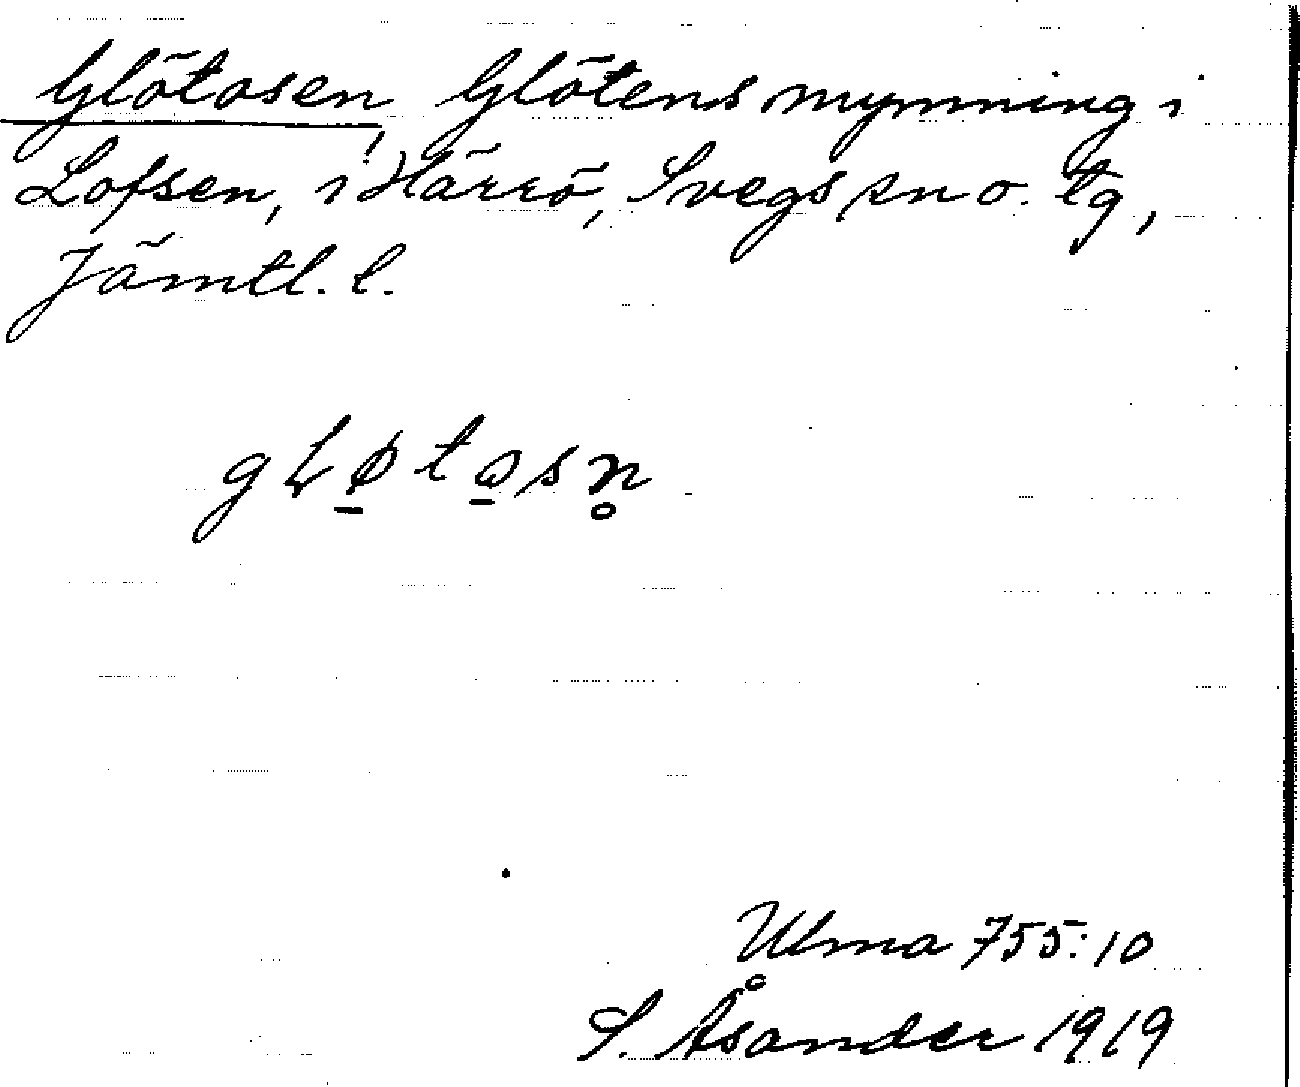 Glötosen, Glötens mynning i
Lofsen, i Härrö, Svegs sn o. tg,
Jämtl. l.
gLø̠to̠sn̥
Ulma 755:10
S. Åsander 1919